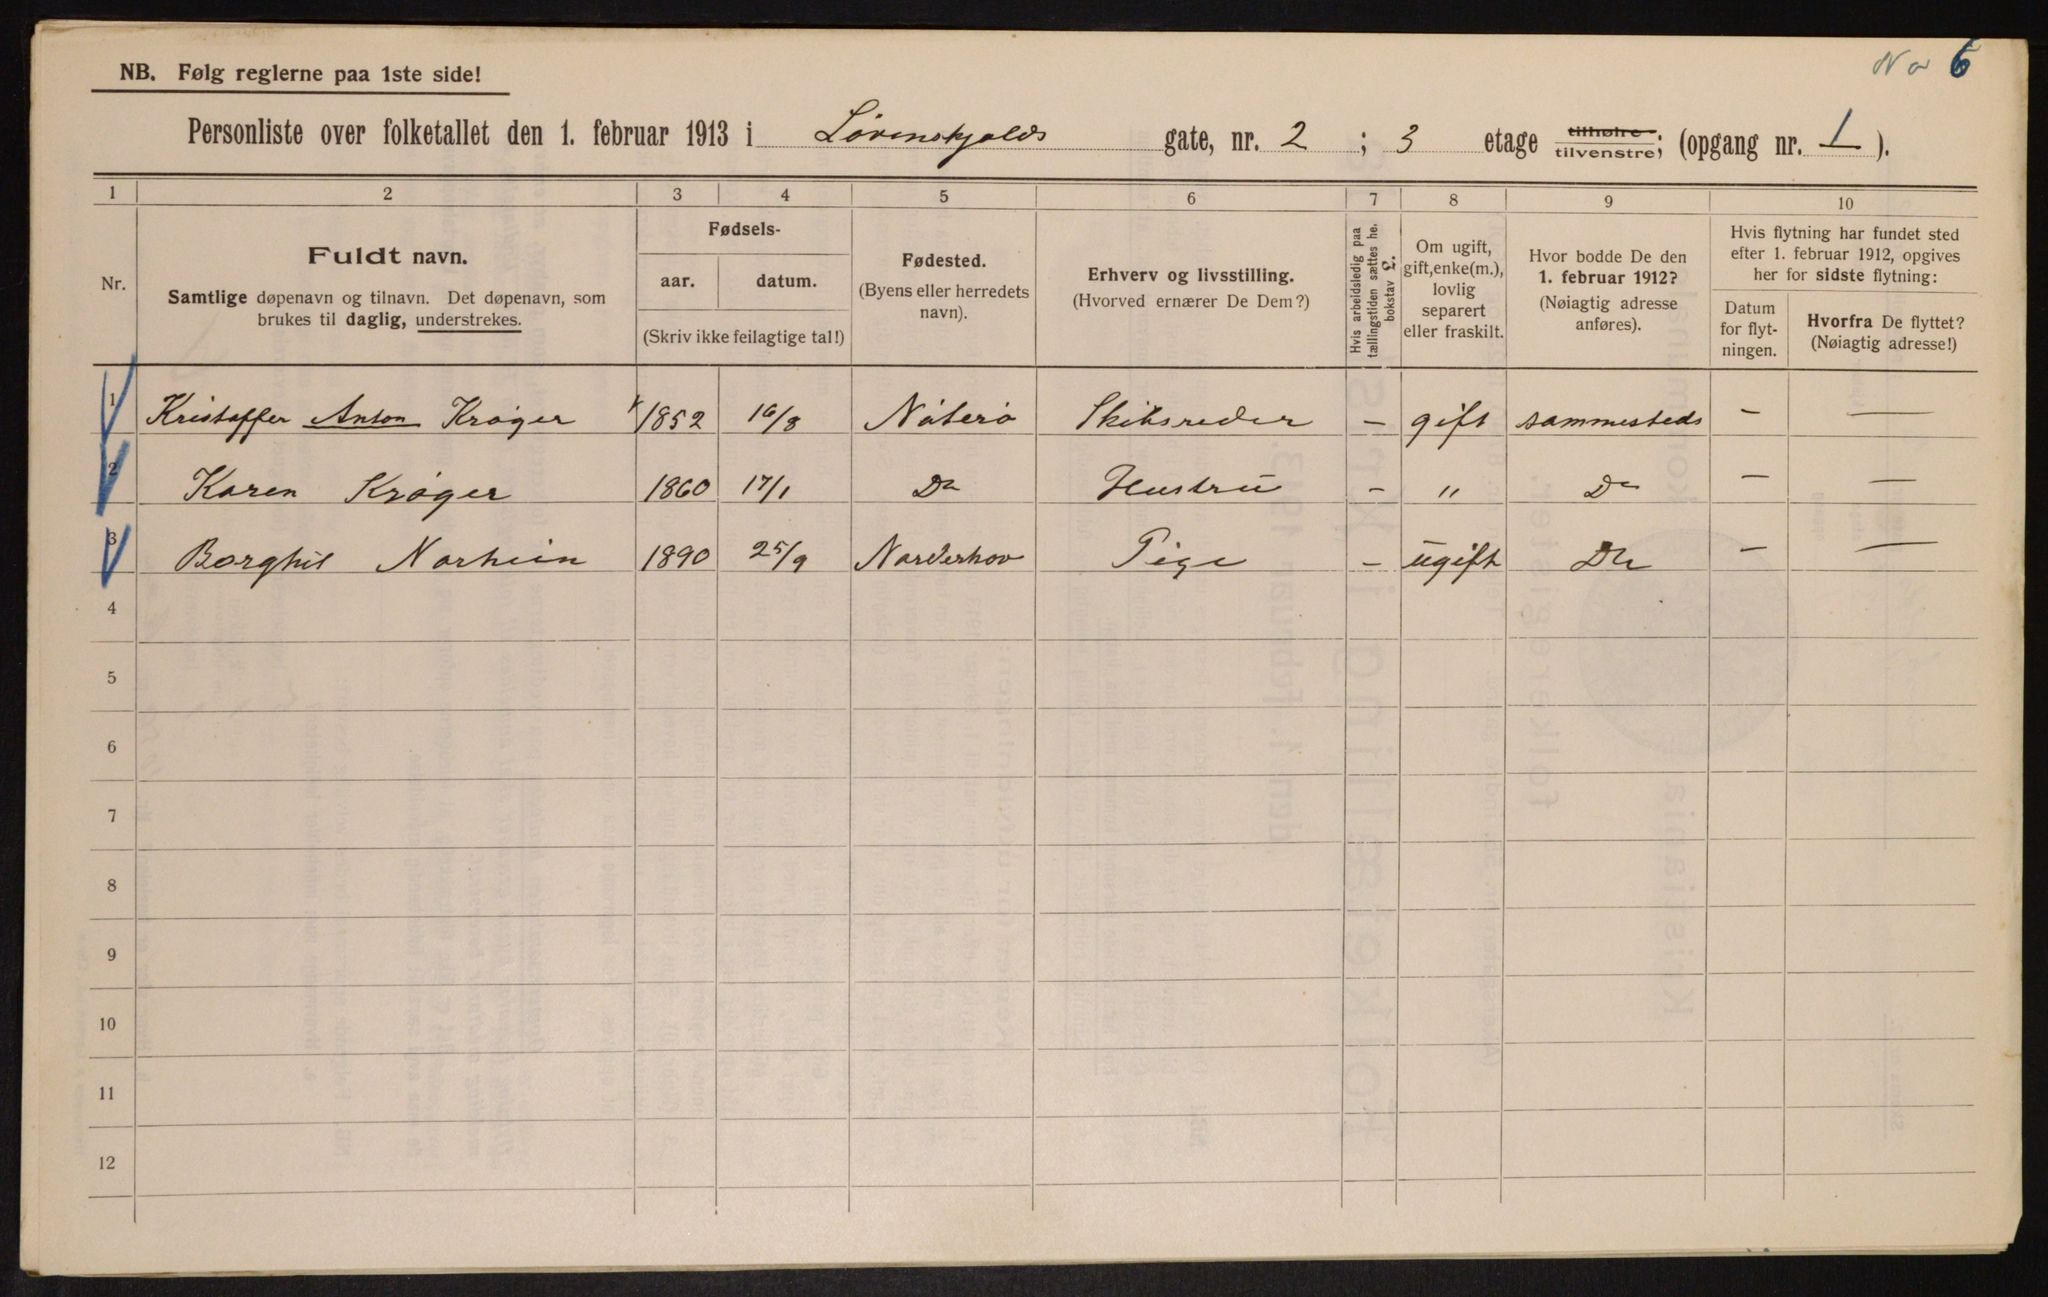 No 6
NB. Følg reglerne paa 1ste side!
Personliste over folketallet den 1. februar 1913 i Løvenskjolds gate, nr. 2 ; 3 etage tilhøire tilvenstre; (opgang nr. 1 ).
1 2 3 4 5 6 7 8 9 10
Nr.
Fuldt navn.
Samtlige døpenavn og tilnavn. Det døpenavn, som
brukes til daglig, understrekes.
Fødsels-
aar. datum.
(Skriv ikke feilagtige tal!)
Fødested.
(Byens eller herredets
navn).
Erhverv og livsstilling.
(Hvorved ernærer De Dem?)
Hvis arbeidsledig paa
tællingstiden sættes he.
bokstav l.
Om ugift,
gift, enke(m.),
lovlig
separert
eller fraskilt.
Hvor bodde De den
1. februar 1912?
(Nøiagtig adresse
anføres).
Hvis flytning har fundet sted
efter 1. februar 1912, opgives
her for sidste flytning:
Datum
for flyt-
ningen.
Hvorfra De flyttet?
(Nøiagtig adresse!)
1 Kristoffer Anton Krøger 1852 16/8 Nøterø Skibsreder – gift sammesteds – —
2 Karen Krøger 1860 17/1 Do Hustru – " Do – —
3 Borghil Norhein 1890 25/9 Norderhov Pige – ugift Do – —
4
5
6
7
8
9
10
11
12